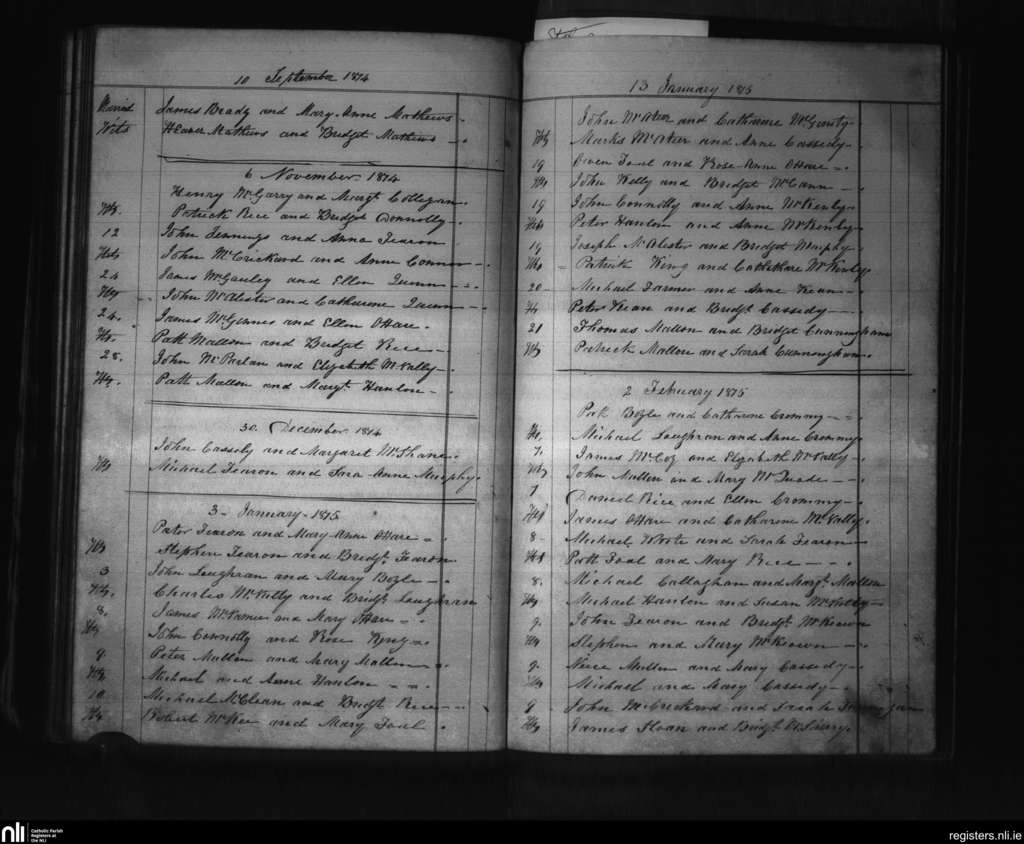 10 September 1874
Married James Brady and Mary Anne Mathews
Wits Mathews and Bridget Mathews
6 November 1874
Henry McGarry and Margt Collegan
Wts. Patrick Rice and Bridget Connolly
12 John Jennings and Anna Fearon
Wts John McCrickard and Anne Connor
24 James McGauley and Ellen Quinn
Wts John McAlister and Catharine Quinn
24. James McGinnes and Ellen OHare
Wts. Patt Mallon and Bridget Rice
28. John McParlan and Elizabeth McNally
Wts. Patt Mallon and Margt Hanlon
30. December 1874
John Cassely and Margaret McShane
Wts Michael Fearon and Sara Anne Murphy
3 January 1875
Peter Fearon and Mary Anne OHare
Wts Stephen Fearon and Bridgt Fearon
3 John Loughran and Mary Boyle
Wts. Charles McNally and Bridgt Loughran
8. James and Mary OHare
Wts John Connolly and Rose King
9. Peter Mallon and Mary Mallon
Wts Michael and Anne Hanlon
10 Michael McClean and Bridgt Rice
Wts Robert McKee and Mary Toal
13 January 1875
John and Catharine McGinity
Wts Marks and Anne Cassedy
19 Owen Toal and Rose Anne OHare
Wts John Kelly and Bridget McCann
19 John Connolly and Anne McKenley
Wts Peter Hanlon and Anne McKenley
19 Joseph McAlester and Bridget Murphy
Wts Patrick King and McKenley
20 Michael Farmer and Anne Kean
Wts Peter Kean and Bridgt Cassedy
21 Thomas Mallon and Bridget Cunningham
Wts Patrick Mallon and Sarah Cunningham
2 February 1875
Patk Boyle and Catharine Crommy
Wts. Michael Loughran and Anne Crommy
7. James McCoy and Elizabeth McNally
Wts John Mullen and Mary McQuade
7 Daniel Rice and Ellen Crommy
Wts James OHare and Catharine McNally
8 Michael and Sarah Fearon
Wts Patt Toal and Mary Rice
8. Michael Callaghan and Margt Mallon
Wts Michael Hanlon and Susan McNally
9. John Fearon and Bridgt McKeown
Wts Stephen and Mary McKeown
9. Mullen and Mary Cassedy
Wts Michael and Mary Cassedy
9 John McCrickard and Sarah
Wts James Sloan and Bridgt
nli
Catholic Parish
Registers at
the NLI
registers.nli.ie